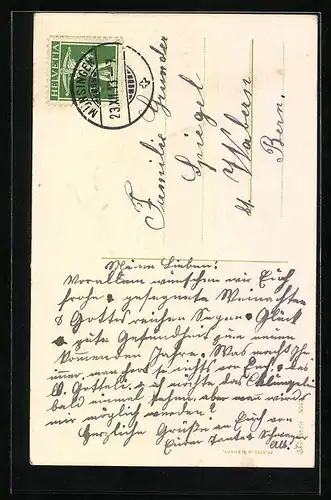 HELVETIA
MÜNSINGEN
23.XII.
Familie Grunder
Spiegel
b/ Wabern
Bern.
Meine Lieben!
Vorallem wünschen wir Euch
frohe & gesegnete Weinachten
& Gottes reichen Segen, Glück
& gute Gesundheit zum neuen
kommenden Jahre. Was macht Ihr
immer, man hört so nichts von Euch, das
lb. Gotteli. & ich möchte das
bald einmal sehen, aber wann wirds
mir möglich werden?
Herzliche Grüße an Euch von
Eurer Tante & Schwager
Alb.